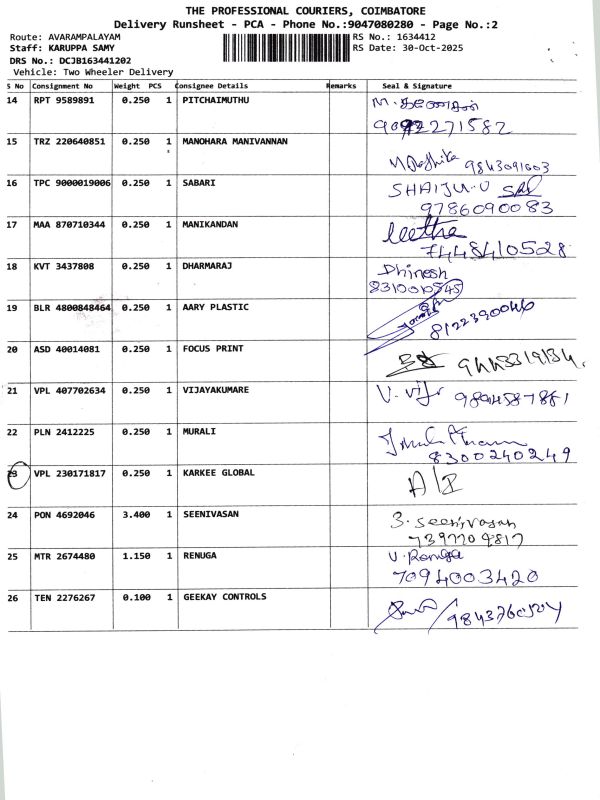 THE PROFESSIONAL COURIERS, COIMBATORE
Delivery Runsheet - PCA - Phone No.:9047080280 - Page No.:2
Route: AVARAMPALAYAM RS No.: 1634412
Staff: KARUPPA SAMY RS Date: 30-Oct-2025
DRS No.: DCJB163441202
Vehicle: Two Wheeler Delivery
S No Consignment No Weight PCS Consignee Details Remarks Seal & Signature
14 RPT 9589891 0.250 1 PITCHAIMUTHU
15 TRZ 220640851 0.250 1 MANOHARA MANIVANNAN
9843091603
16 TPC 9000019006 0.250 1 SABARI SHAIJU.U
9786090083
17 MAA 870710344 0.250 1 MANIKANDAN
7448410528
18 KVT 3437808 0.250 1 DHARMARAJ Dhinesh
8310010545
19 BLR 4800848464 0.250 1 AARY PLASTIC
8122390046
20 ASD 40014081 0.250 1 FOCUS PRINT
21 VPL 407702634 0.250 1 VIJAYAKUMARE
22 PLN 2412225 0.250 1 MURALI
8300240249
23 VPL 230171817 0.250 1 KARKEE GLOBAL
24 PON 4692046 3.400 1 SEENIVASAN S. Seenivasan
25 MTR 2674480 1.150 1 RENUGA V. Renuga
7094003420
26 TEN 2276267 0.100 1 GEEKAY CONTROLS